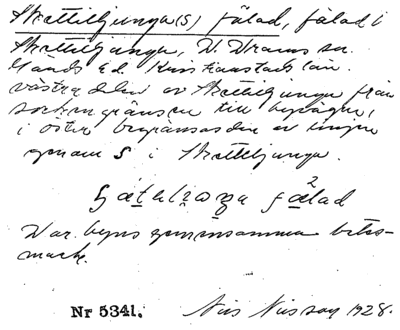 Skättiljunga(s) fälad, fälad i
Skättiljunga, N. Strö sn.
Gärds hd. Kristianstads län.
västra delen av Skättiljunga från
sockengränsen till byvägen,
i öster begränsas den av linjen
genom S i Skättiljunga.
fälad
Var byns gemensamma betes-
mark.
Nr 5341. Nils Nilsson 1928.